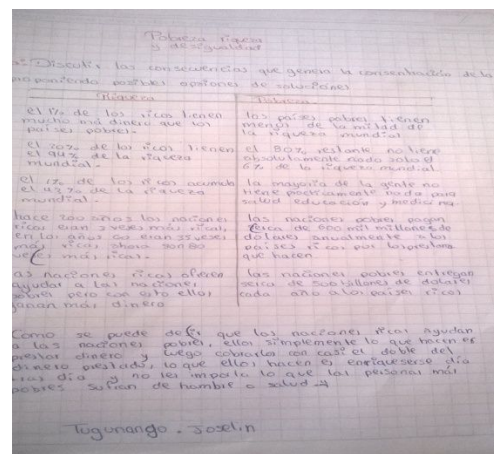 Pobreza riqueza
y desigualdad
Discutir las consecuencias que genera la consentración de la
proponiendo posibles opciones de soluciones
Riqueza
Pobreza
el 1% de los ricos tienen
mucho más dinero que los
países pobres.
los países pobres tienen
menos de la mitad de
la riqueza mundial.
el 20% de los ricos tienen
el 94% de la riqueza
mundial.
el 80% restante no tiene
absolutamente nada solo el
6% de la riqueza mundial.
el 1% de los ricos acumula
el 43% de la riqueza
mundial.
la mayoría de la gente no
tiene practicamente nada para
salud educación y medicina.
hace 200 años las naciones
ricas eran 3 veces más ricas,
en los años 60 eran 35 veces
más ricas ahora son 80
veces más ricas.
las naciones pobres pagan
cerca de 600 mil millones de
dolares anualmente a los
países ricos por los prestamos
que hacen
as naciones ricas ofrecen
ayudar a las naciones
pobres pero con esto ellos
ganan más dinero
las naciones pobres entregan
serca de 500 billones de dolares
cada año a los países ricos
Como se puede decir que las naciones ricas ayudan
a las naciones pobres, ellos simplemente lo que hacen es
prestar dinero y luego cobrarlo con casi el doble del
dinero prestado, lo que ellos hacen es enriqueserse día
tras día y no les importa lo que las personas más
pobres sufran de hambre o salud
Tugunango. Joselin